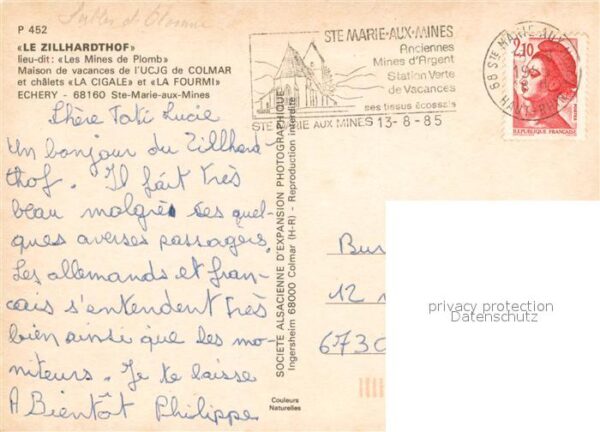 Sables d'Olonne
P 452
«LE ZILLHARDTHOF»
lieu-dit: «Les Mines de Plomb»
Maison de vacances de l'UCJG de COLMAR
et châlets «LA CIGALE» et «LA FOURMI»
ECHERY - 68160 Ste-Marie-aux-Mines
Chère Tati Lucie
Un bonjour du Zillhard-
thof. Il fait très
beau malgrès ses quel-
ques averses passagères.
Les allemands et fran-
cais s'entendent très
bien ainsi que les mo-
niteurs. Je te laisse
A Bientôt Philippe
SOCIETE ALSACIENNE D'EXPANSION PHOTOGRAPHIQUE
Ingersheim 68000 Colmar (H-R) - Reproduction interdite
Couleurs
Naturelles
STE MARIE-AUX-MINES
Anciennes
Mines d'Argent
Station Verte
de Vacances
ses tissus écossais
STE MARIE AUX MINES 13-8-85
68 STE MARIE AUX
HAUT-RHIN
2,10
POSTES
REPUBLIQUE FRANÇAISE
12
privacy protection
Datenschutz